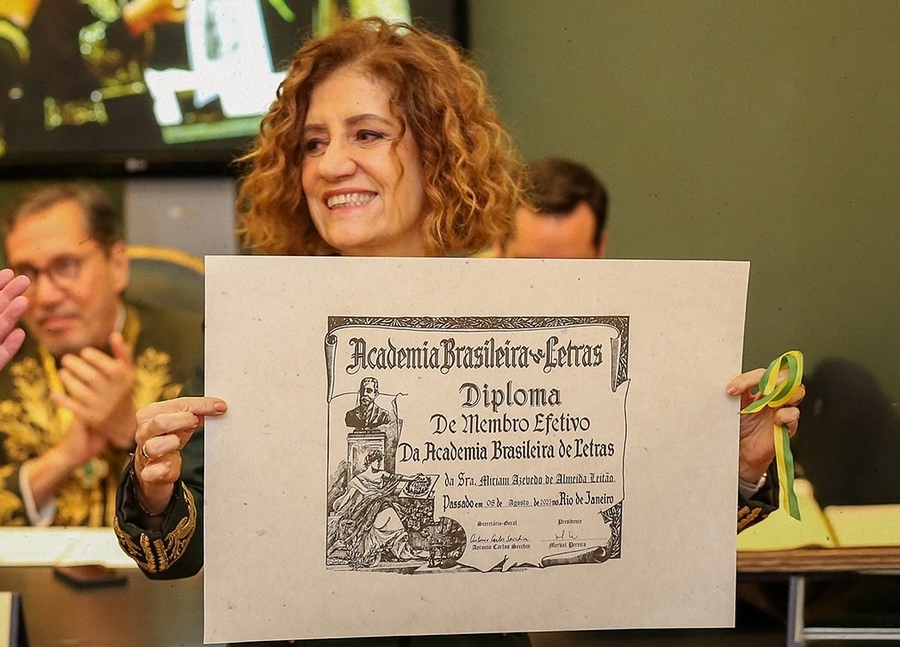 Academia Brasileira de Letras
Diploma
De Membro Efetivo
Da Academia Brasileira de Letras
da Sra. Miriam Azevedo de Almeida Leitão
Passado em 08 de Agosto de 2025 no Rio de Janeiro
Secretário-Geral Presidente
Antonio Carlos Secchin Merval Pereira